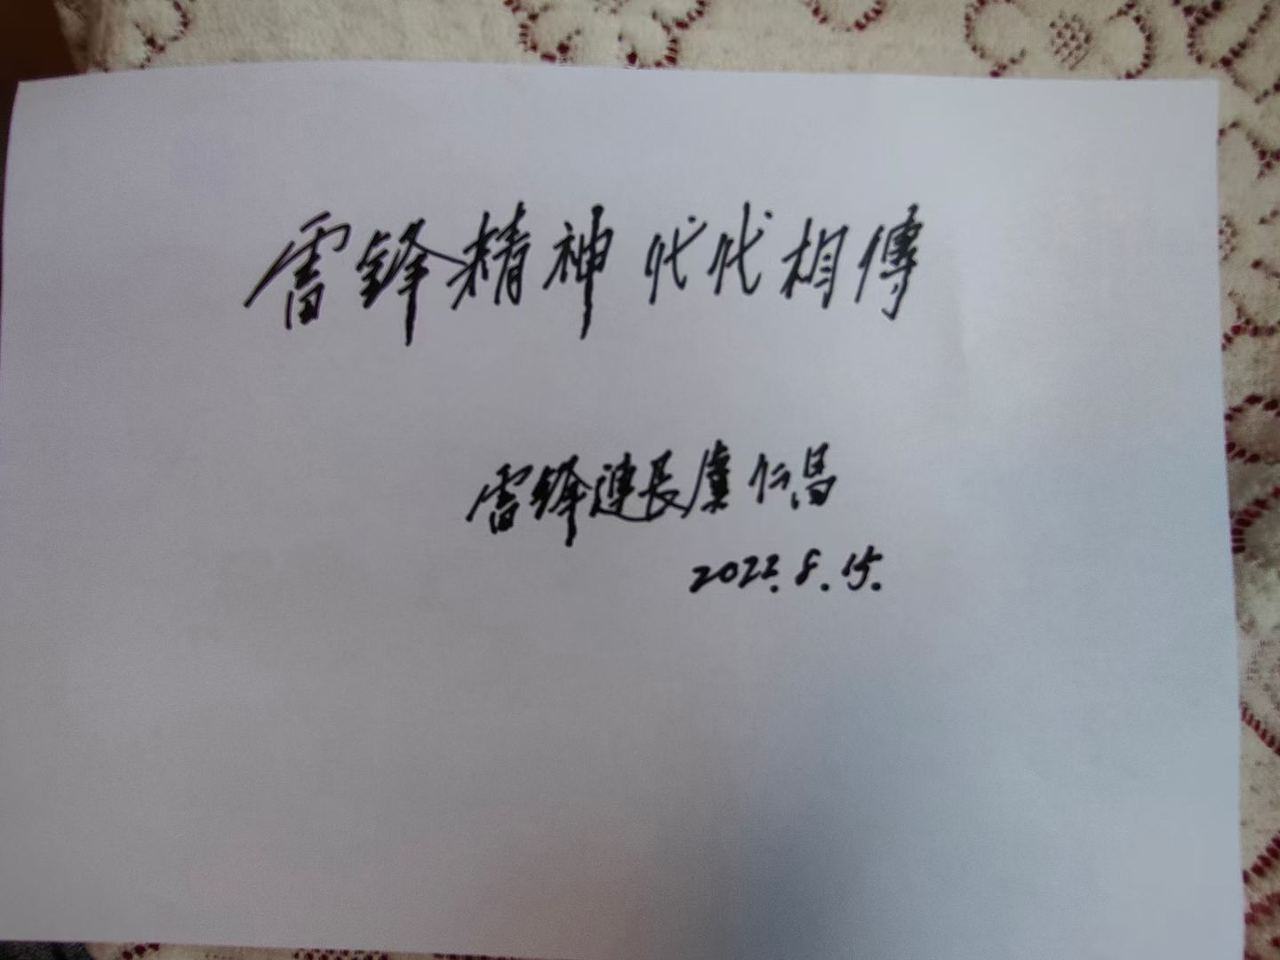 雷鋒精神代代相傳
雷鋒連長虞仁昌
2022.8.15.